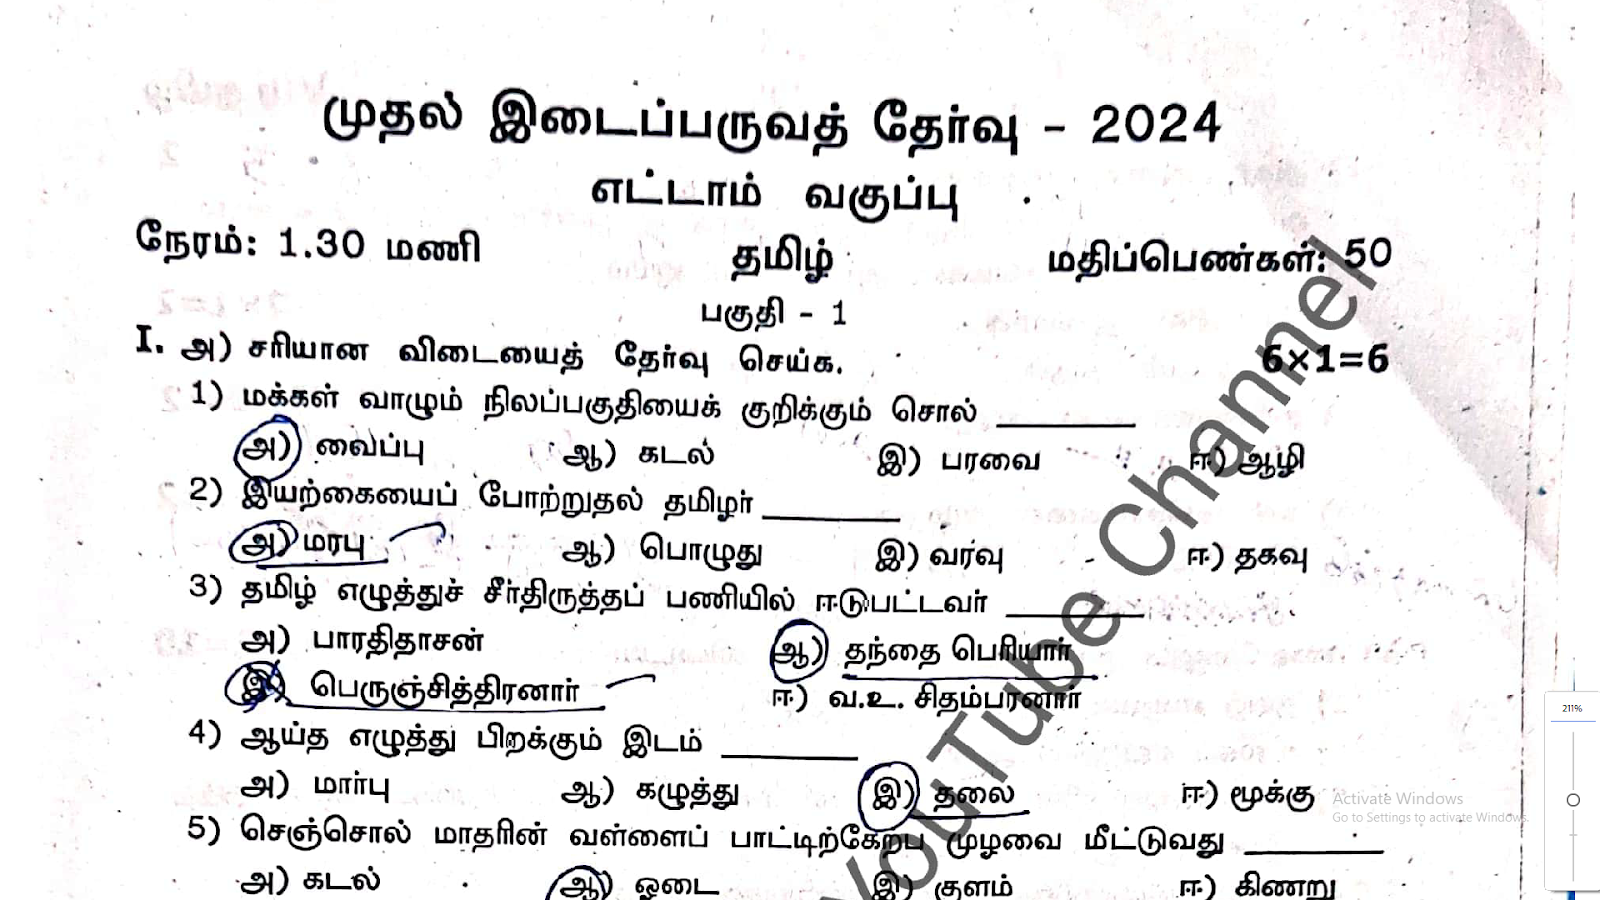 முதல் இடைப்பருவத் தேர்வு - 2024
எட்டாம் வகுப்பு
நேரம்: 1.30 மணி தமிழ் மதிப்பெண்கள்: 50
பகுதி - 1
I. அ) சரியான விடையைத் தேர்வு செய்க. 6×1=6
1) மக்கள் வாழும் நிலப்பகுதியைக் குறிக்கும் சொல் ________
அ) வைப்பு ஆ) கடல் இ) பரவை ஈ) ஆழி
2) இயற்கையைப் போற்றுதல் தமிழர் ________
அ) மரபு ஆ) பொழுது இ) வர்வு ஈ) தகவு
3) தமிழ் எழுத்துச் சீர்திருத்தப் பணியில் ஈடுபட்டவர் ________
அ) பாரதிதாசன் ஆ) தந்தை பெரியார்
இ) பெருஞ்சித்திரனார் ஈ) வ.உ. சிதம்பரனார்
4) ஆய்த எழுத்து பிறக்கும் இடம் ________
அ) மார்பு ஆ) கழுத்து இ) தலை ஈ) மூக்கு
5) செஞ்சொல் மாதரின் வள்ளைப் பாட்டிற்கேற்ப முழவை மீட்டுவது ________
அ) கடல் ஆ) ஓடை இ) குளம் ஈ) கிணறு
YouTube Channel
211%
Activate Windows
Go to Settings to activate Windows.